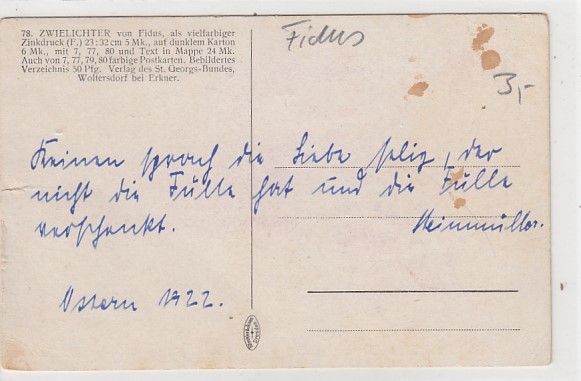 78. ZWIELICHTER von Fidus, als vielfarbiger
Zinkdruck (F.) 23:32 cm 5 Mk., auf dunklem Karton
6 Mk., mit 7, 77, 80 und Text in Mappe 24 Mk.
Auch von 7, 77, 79, 80 farbige Postkarten. Bebildertes
Verzeichnis 50 Pfg. Verlag des St. Georgs-Bundes,
Woltersdorf bei Erkner.
Fidus
3,-
Keinen sprach die Liebe selig, der
nicht die Fülle hat und die Fülle
verschenkt.
Steinmüller.
Ostern 1922.